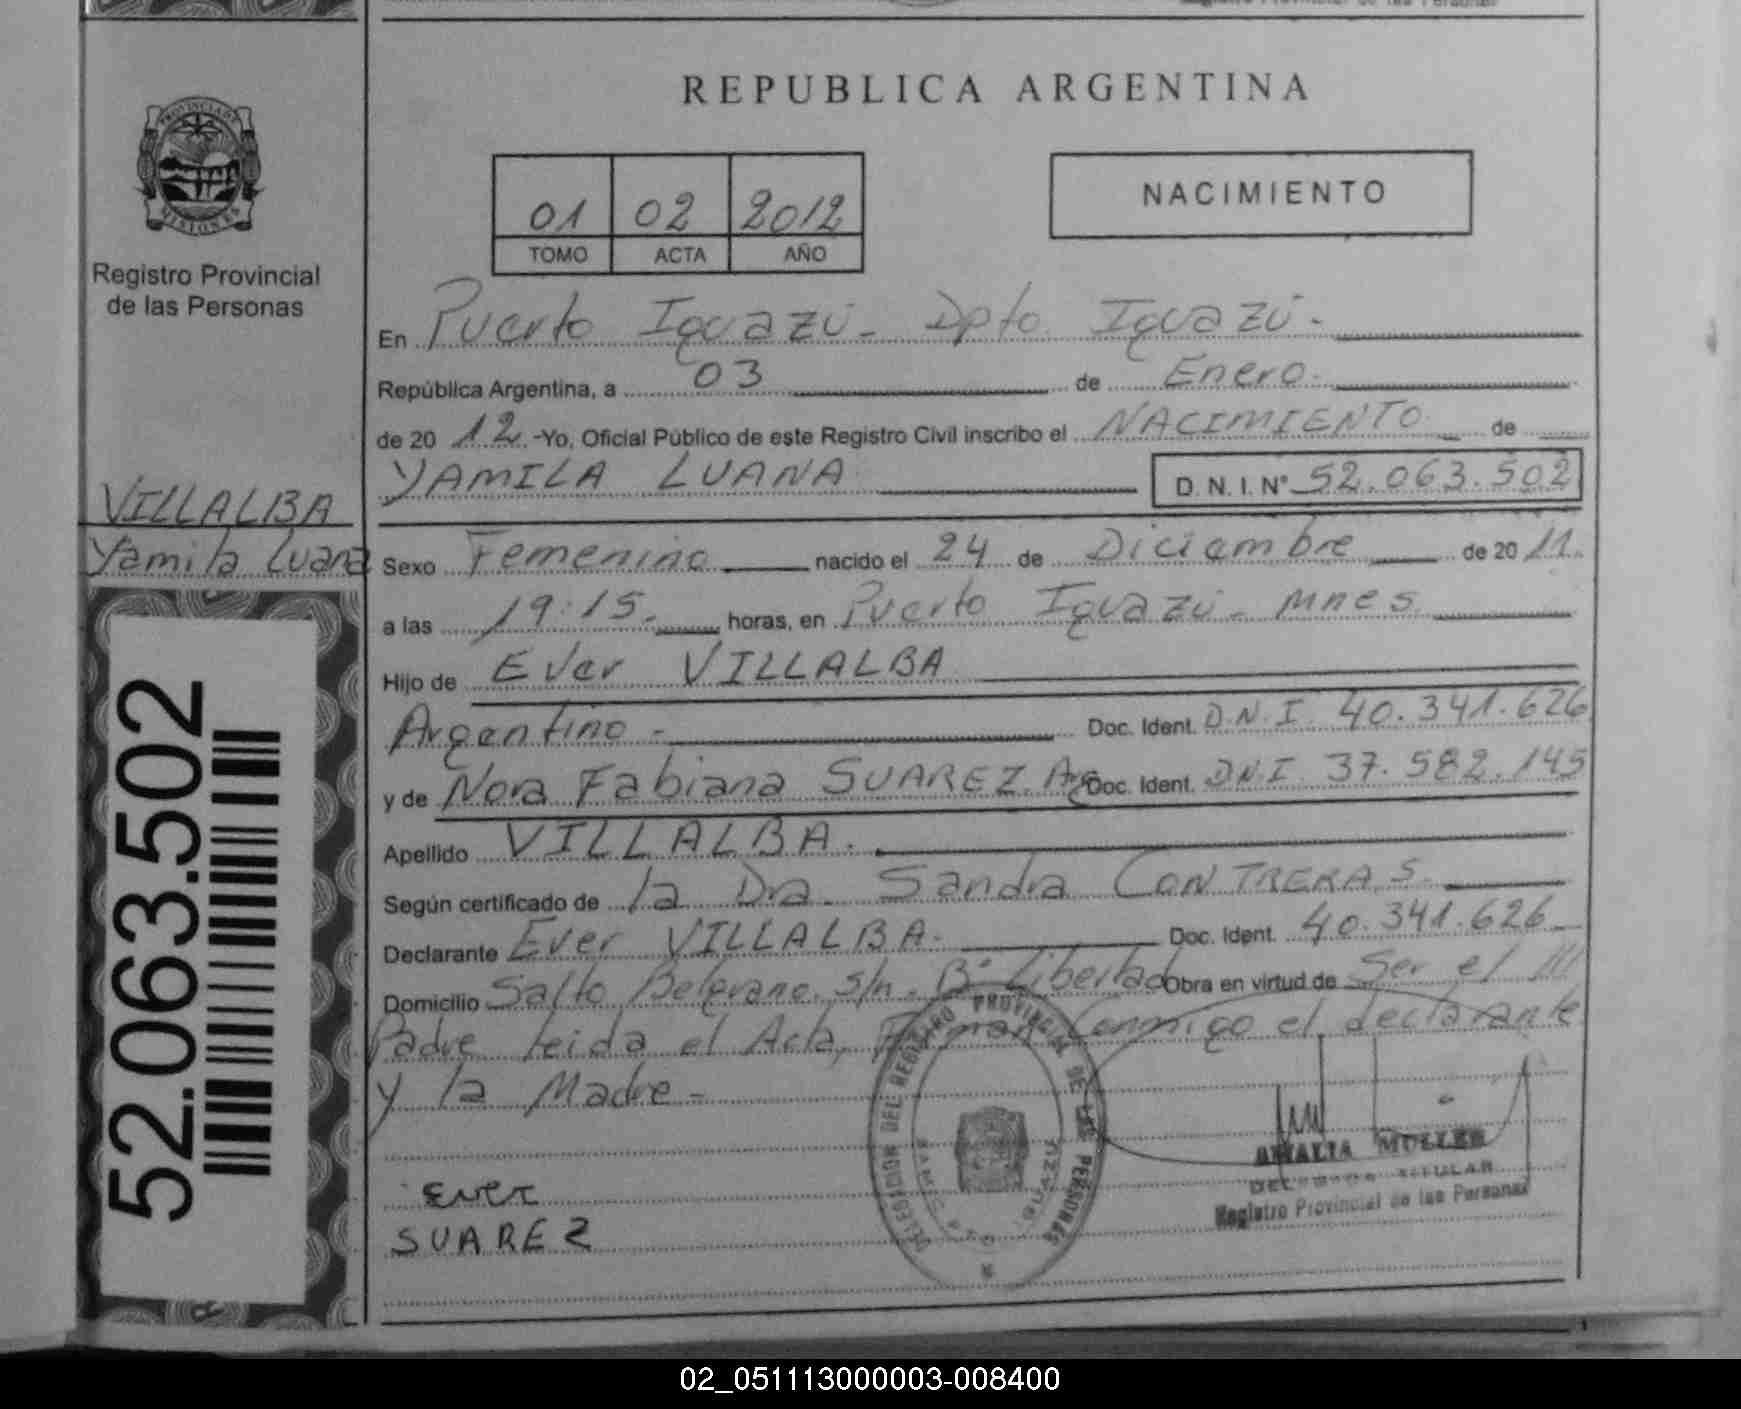 REPUBLICA ARGENTINA
PROVINCIA DE
MISIONES
Registro Provincial
de las Personas
01 02 2012
TOMO ACTA AÑO
NACIMIENTO
En Puerto Iguazú - Dpto. Iguazú -
República Argentina, a 03 de Enero.
de 20 12 -Yo, Oficial Público de este Registro Civil inscribo el NACIMIENTO de
YAMILA LUANA D. N. I. Nº 52.063.502
VILLALBA
Yamila Luana
Sexo Femenino nacido el 24 de Diciembre de 20 11.
a las 19:15. horas, en Puerto Iguazú - Mnes.
Hijo de Ever VILLALBA
Argentino - Doc. Ident. D.N.I. 40.341.626
y de Nora Fabiana SUAREZ. Arg Doc. Ident. D.N.I. 37.582.145
Apellido VILLALBA.
Según certificado de la Dra. Sandra CONTRERAS.
Declarante Ever VILLALBA. Doc. Ident. 40.341.626
Domicilio Salto Belgrano. s/n. Bº Libertad Obra en virtud de Ser el ///
Padre leida el Acta, Firman Conmigo el declarante
y la Madre -
Ever
SUAREZ
DELEGACION DEL REGISTRO PROVINCIAL DE LAS PERSONAS
AMALIA MULLER
TITULAR
Registro Provincial de las Personas
52.063.502
02_051113000003-008400